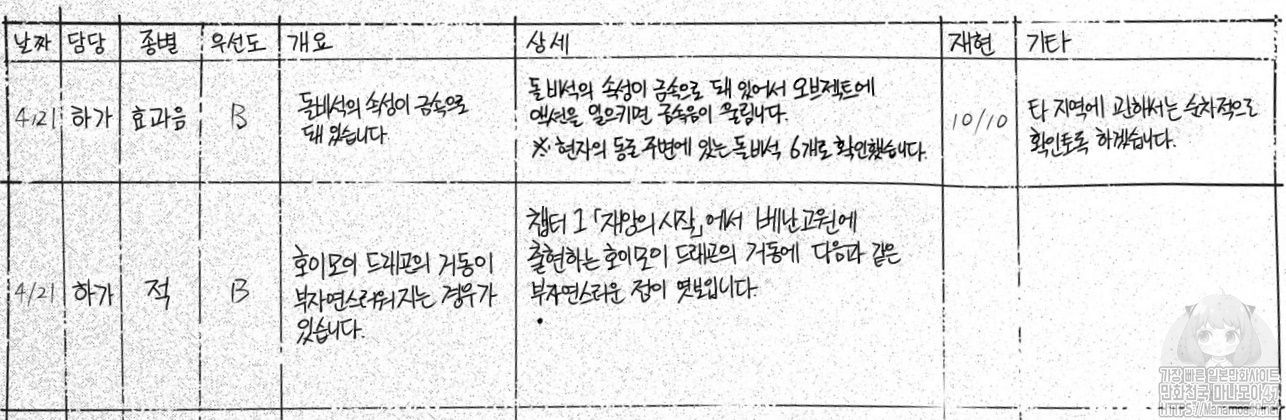 날짜 담당 종별 우선도 개요 상세 재현 기타
4/21 하가 효과음 B
돌비석의 속성이 금속으로
돼 있습니다.
돌비석의 속성이 금속으로 돼 있어서 오브젝트에
액션을 일으키면 금속음이 울립니다.
※ 현자의 동로 주변에 있는 돌비석 6개로 확인했습니다.
10/10
타 지역에 관해서는 순차적으로
확인토록 하겠습니다.
4/21 하가 적 B
호이모이 드래곤의 거동이
부자연스러워지는 경우가
있습니다.
챕터 1 「재앙의 시작」에서 베난고원에
출현하는 호이모이 드래곤의 거동에 다음과 같은
부자연스러운 점이 엿보입니다.
•
가장 빠른 일본만화사이트
만화천국 마나모아